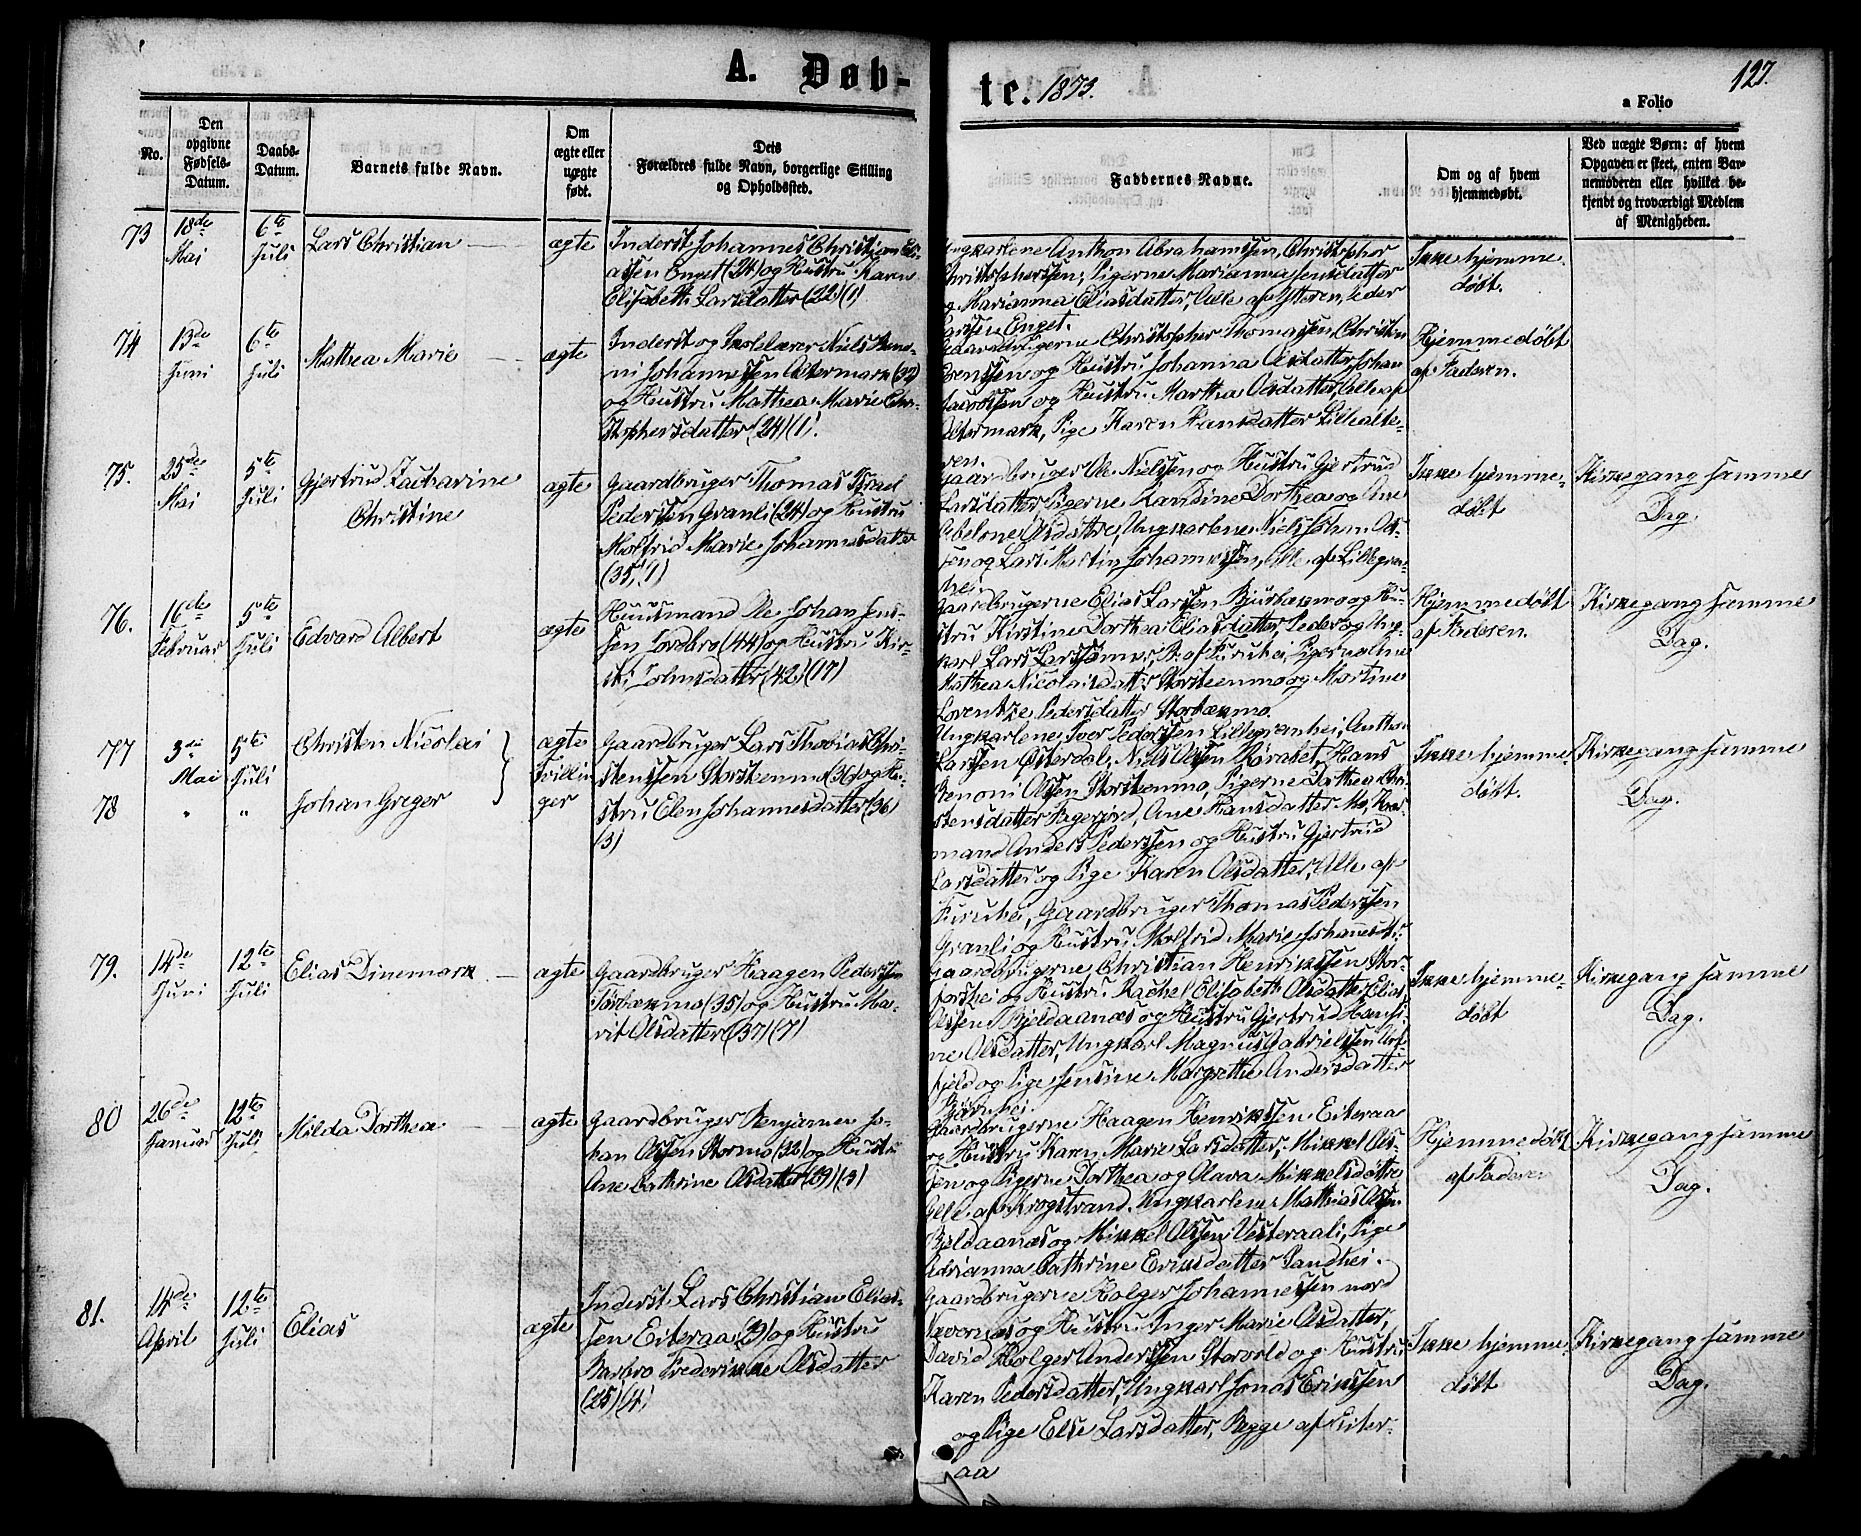 A. Døb-
te. 1873.
127.
a Folio
No.
Den opgivne Fødsels-Datum.
Daabs-Datum.
Barnets fulde Navn.
Om ægte eller uægte født.
Dets Forældres fulde Navn, borgerlige Stilling og Opholdssted.
Faddernes Navne.
Om og af hvem hjemmedøbt.
Ved uægte Børn: af hvem
Opgaven er skeet, enten Bar-
nemoderen eller hvilket be-
kjendt og troværdigt Medlem
af Menigheden.
73
18de Mai
6te Juli
Lars Christian
ægte
Inderst Johannes Christian Eli-
assen Enget (24) og Hustru Karen
Elisabeth Larsdatter (22) (1)
Ungkarlene Anthon Abrahamssen, Christopher
Christophersen; Pigerne Marianna Jensdatter
og Marianna Eliasdatter, Alle af Ytteren, Peder
Larssen Enget.
Ikke hjemme-
døbt.
74
13de Juni
6te Juli
Mathea Marie
ægte
Inderst og Skolelærer Niels Beno-
ni Johannessen Altermark (32)
og Hustru Mathea Marie Chri-
stophersdatter (24) (1).
Gaardbrugerne Christopher Thomassen, Christen
Orenssen og Hustru Johanna Olsdatter, Johan
Jacobssen og Hustru Martha Olsdatter, Alle af
Altermark, Pige Karen Hansdatter Lillealte-
ren.
Hjemmedøbt
af Faderen.
75.
25de Mai
5te Juli
Gjertrud Zacharine
Christine
ægte
Gaardbruger Thomas Israel
Pederssen Granli (24) og Hustru
Molfrid Marie Johannesdatter
(35) (1)
Gaardbruger Ole Nielssen og Hustru Gjertrud
Larsdatter, Pigerne Randine Dorthea og Ane
Abelone Olsdattre, Ungkarlene Niels Johan Ols-
sen og Lars Martin Johannessen, Alle af Lillegran-
hei.
Ikke hjemme-
døbt
Kirkegang samme
Dag.
76.
16de Februar
5te Juli
Edvard Albert
ægte
Huusmand Ole Johan Jens-
sen Josbro (44) og Hustru Kir-
sti Johnsdatter (42) (17)
Gaardbrugerne Elias Larssen Bjurbækmo og Hu-
stru Kirstine Dorthea Eliasdatter, Peder og Ung-
karl Lars Larssønner, B. af Furuhei, Pigerne Oline
Mathea Nicolaisdatt: Storsteenmo og Martine
Lorentze Pedersdatter Storbækmo.
Hjemmedøbt
af Faderen.
Kirkegang samme
Dag.
77
3die Mai
5te Juli
Christen Nicolai
ægte
Gaardbruger Lars Thobias Chri-
stenssen Storstenmo (36) og Hu-
stru Elen Johannesdatter (36)
(3)
78
"
"
Johan Greger
Tvillin
ger
Ungkarlene Iver Pederssen Lillegranhei, Anthon
Larssen Østerdal, Niels Olssen Rørabet, Hans
Benoni Olssen Storstenmo, Pigerne Dorthea Chri-
stensdatter Fagerjord, Ane Hansdatter Mo, Huus-
mand Anders Pederssen og Hustru Gjertrud
Larsdatter og Pige Karen Olsdatter, Alle af
Furuhei, Gaardbruger Thomas Pederssen
Granli og Hustru Molfrid Marie Johannesdtr:
Ikke hjemme-
døbt.
Kirkegang samme
Dag.
79.
14de Juni
12te Juli
Elias Dinemark
ægte
Gaardbruger Haagen Pederssen
Torbækmo (35) og Hustru Ma-
rit Olsdatter (37) (7)
Gaardbrugerne Christian Henrikssen Stor-
forshei og Hustru Rachel Elisabeth Olsdatter, Elias
Olssen Bjeldaanæs og Hustru Gjertrud Hansi-
ne Olsdatter, Ungkarl Magnus Gabrielssen
fjeld og Pige Jensine Margrethe Andersdatter
Ikke hjemme-
døbt
Kirkegang samme
Dag.
80
26de Januar
12te Juli
Milda Dorthea
ægte
Gaardbruger Benjamin Jo-
han Olssen Stormo (38) og Hustru
Ane Cathrine Olsdatter (29) (3)
Gaardbrugerne Haagen Henrikssen Eiteraa
og Hustru Karen Marie Larsdatter, Mikkel Ols-
sen og Pigerne Dorthea og Olava Mikkelsdøttre
Alle af Krogstrand, Ungkarlene Mathias Olssen
Bjeldaanæs og Mikkel Olssen Vesteraali, Pige
Adrianna Cathrine Eriksdatter Randhei.
Hjemmedøbt
af Faderen
Kirkegang samme
Dag.
81.
14de April
12te Juli
Elias
ægte
Inderst Lars Christian Elias-
sen Eiteraa og Hustru
Barbro Frederikke Olsdatter
(25) (4)
Gaardbrugerne Holger Johannessen nord
og Hustru Inger Marie Olsdatter,
David Holger Anderssen Storvold og Hustru
Karen Pedersdatter, Ungkarl Jonas Erikssen
og Pige Else Larsdatter, Begge af Eiter-
aa
Ikke hjemme-
døbt
Kirkegang samme
Dag.